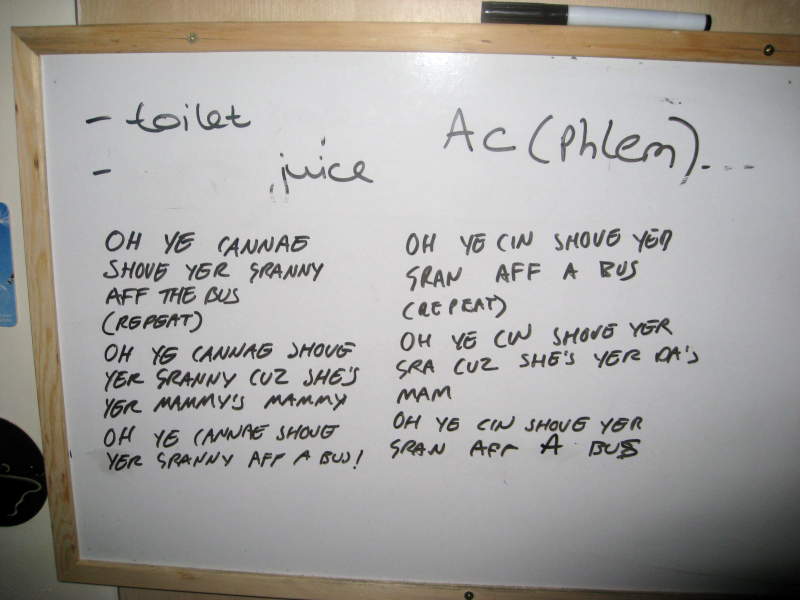 - toilet
- juice
Ac (Phlem)...
OH YE CANNAE
SHOVE YER GRANNY
AFF THE BUS
(REPEAT)
OH YE CANNAE SHOVE
YER GRANNY CUZ SHE'S
YER MAMMY'S MAMMY
OH YE CANNAE SHOVE
YER GRANNY AFF A BUS!
OH YE CIN SHOVE YER
GRAN AFF A BUS
(REPEAT)
OH YE CIN SHOVE YER
GRA CUZ SHE'S YER DA'S
MAM
OH YE CIN SHOVE YER
GRAN AFF A BUS